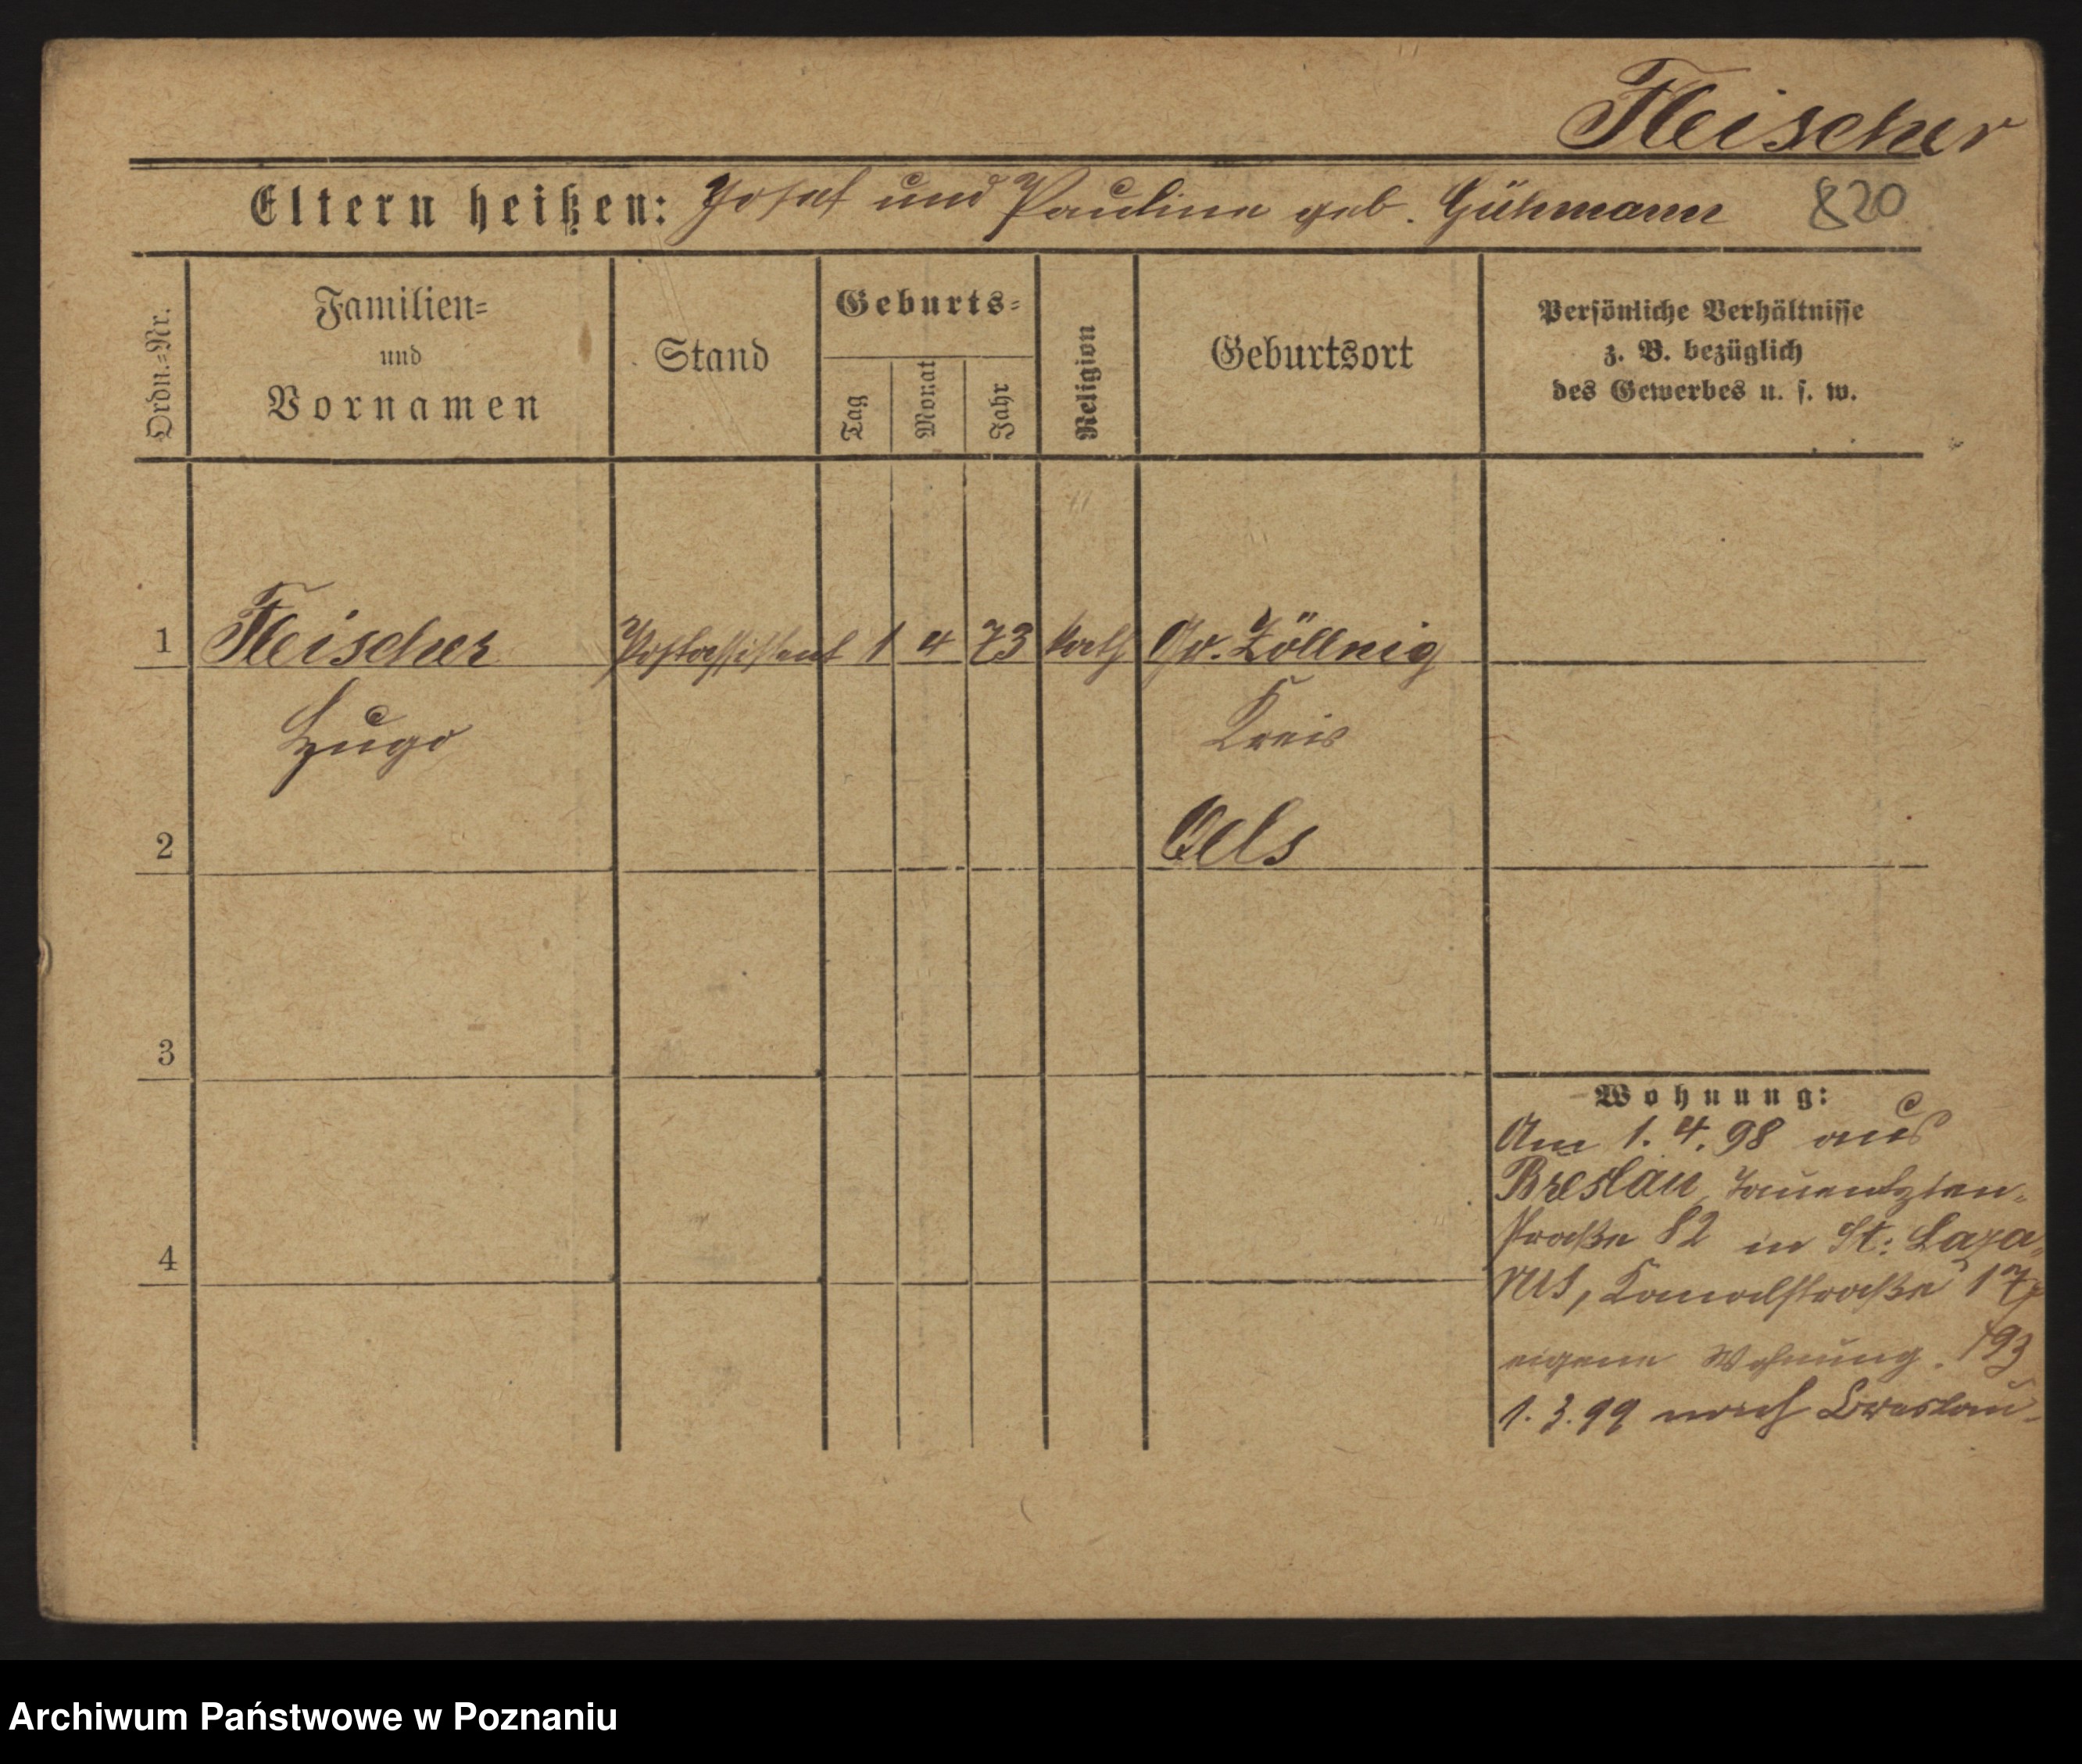 Fleischer
Eltern heißen: Josef und Pauline geb. Gühmann 820
Ordn.-Nr.
Familien-
und
Vornamen
Stand
Geburts-
Tag
Monat
Jahr
Religion
Geburtsort
Persönliche Verhältnisse
z. B. bezüglich
des Gewerbes u. s. w.
1 Fleischer Postassistent 1 4 73 kath Gr. Zöllnig
Hugo Kreis
2 Oels
3
Wohnung:
Am 1. 4. 98 aus
Breslau, Tauentzien-
4 straße 82 in St: Laza-
rus, Kanalstraße 17,
eigene Wohnung. 193
1. 3. 99 nach Breslau
Archiwum Państwowe w Poznaniu